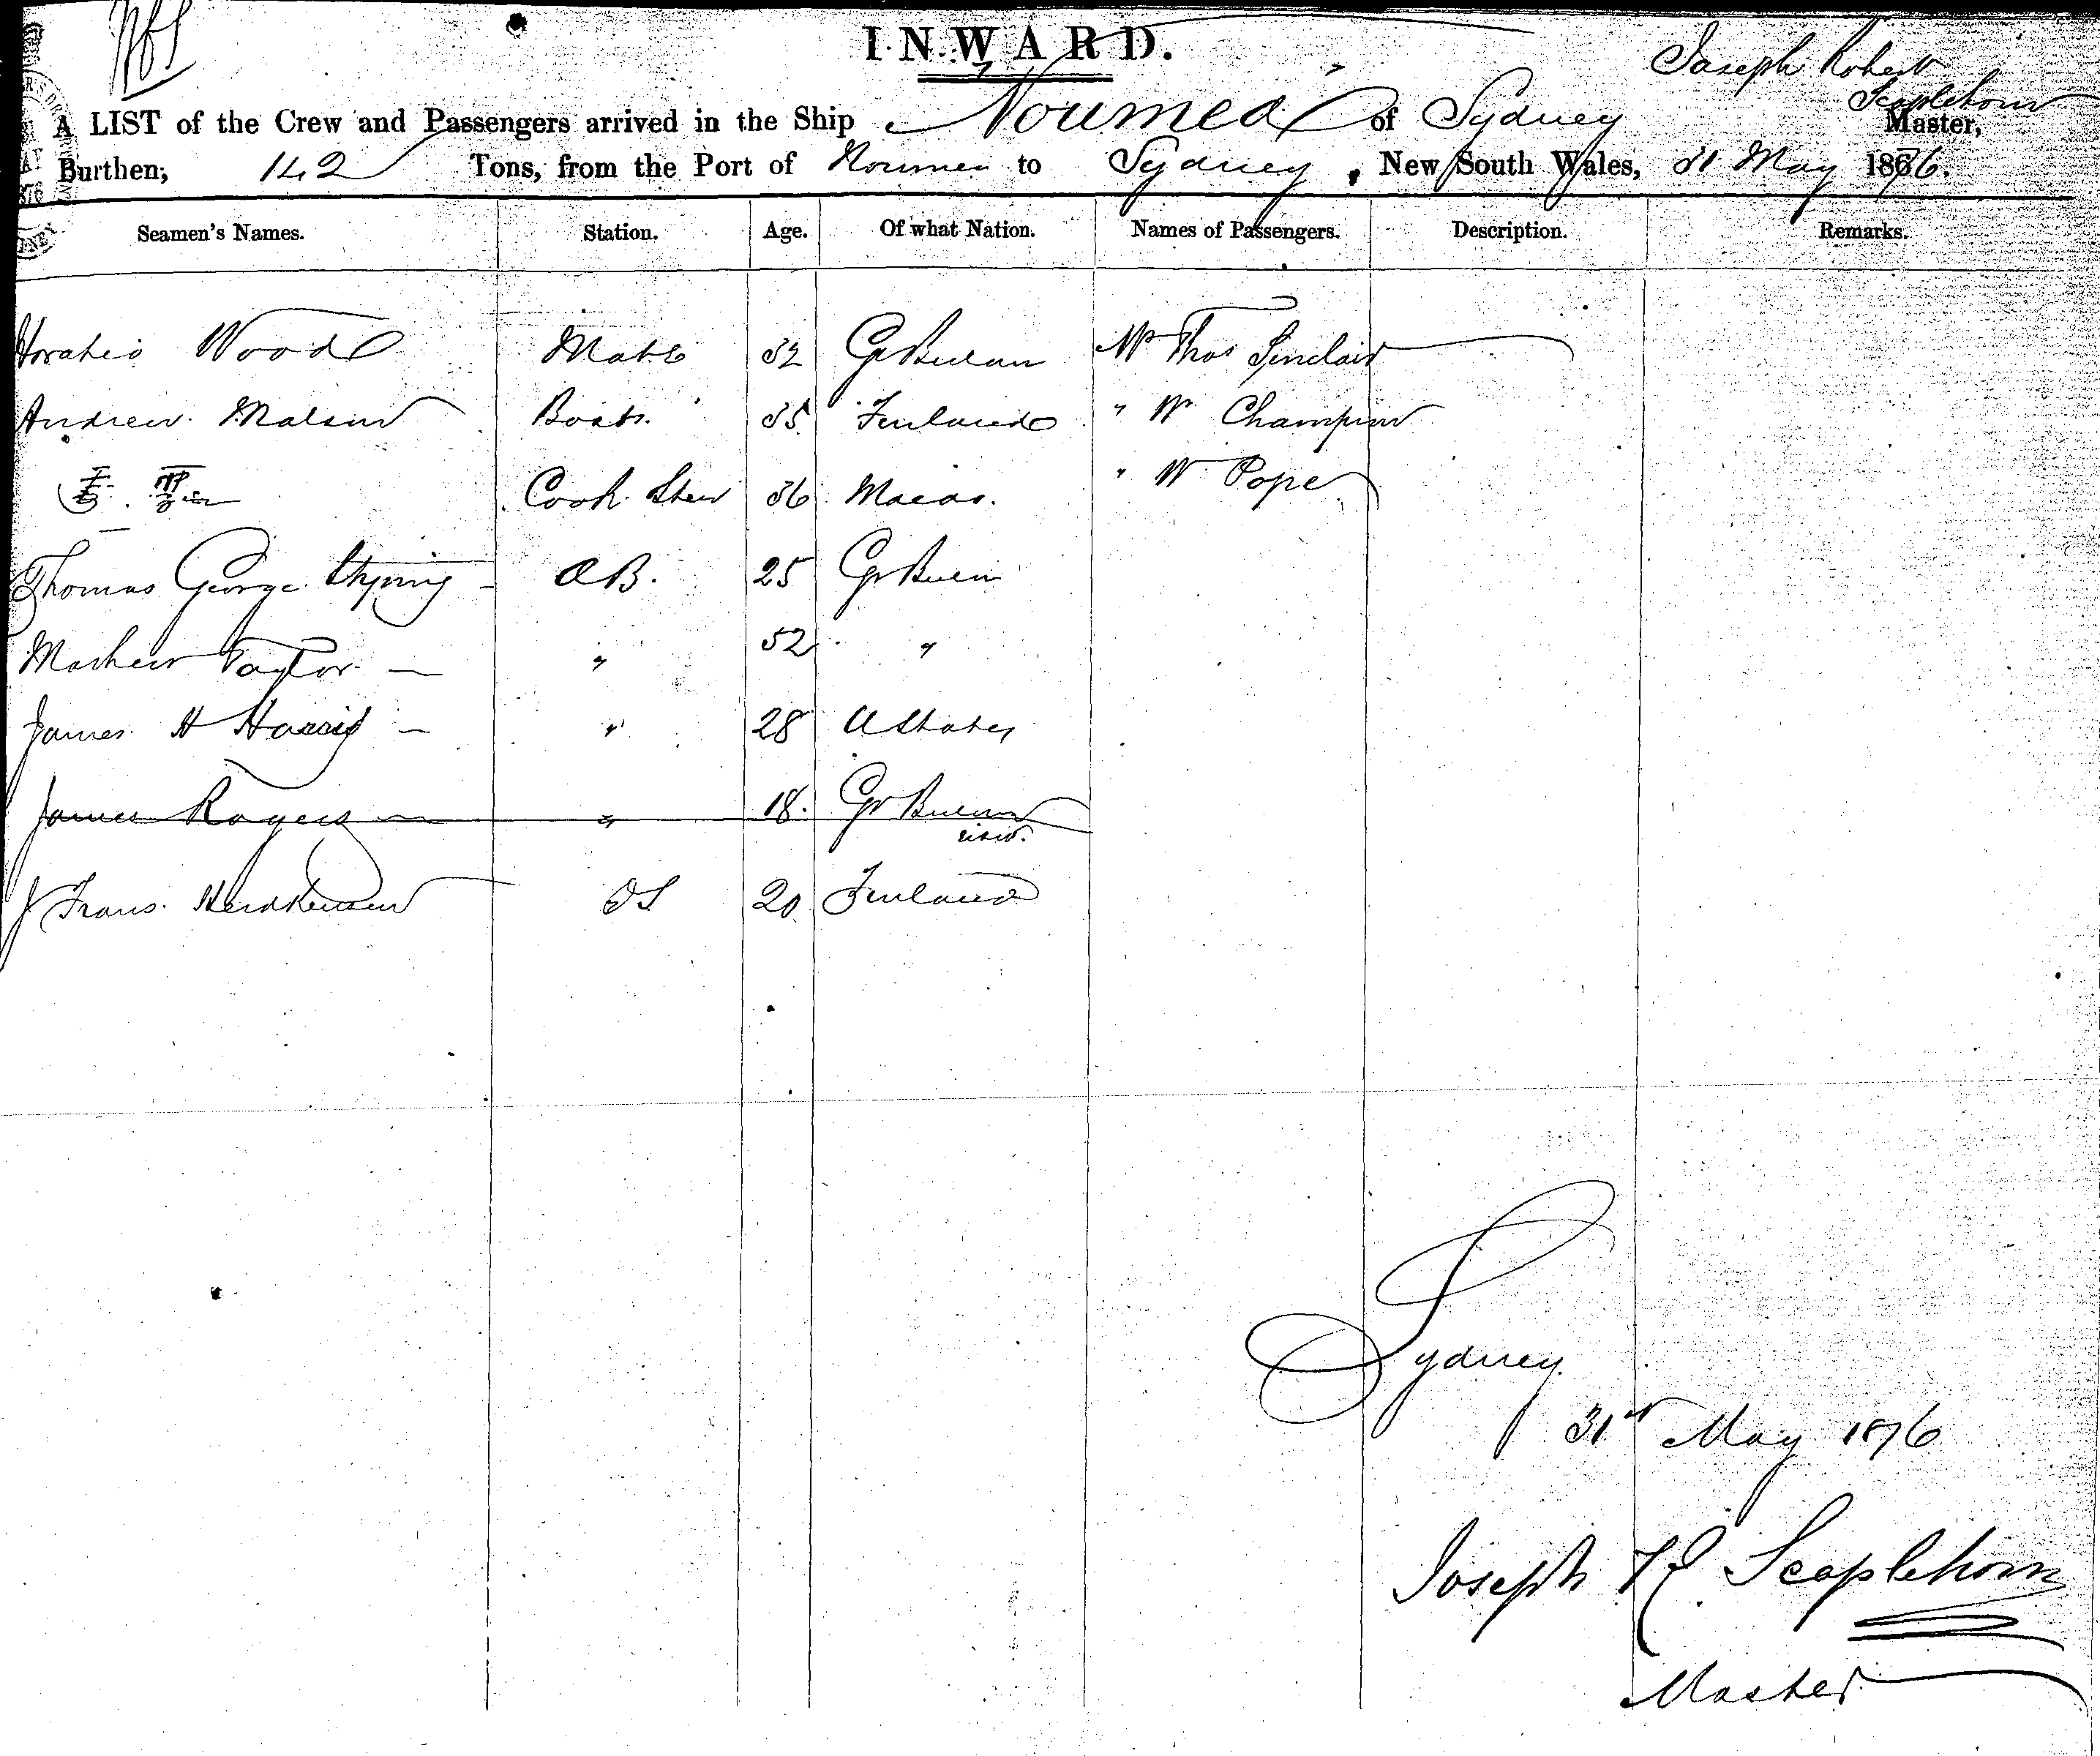 INWARD.
Joseph Robert
Scaplehorn
A LIST of the Crew and Passengers arrived in the Ship Noumea of Sydney Master,
Burthen, 142 Tons, from the Port of Noumea to Sydney, New South Wales, 31 May 1876.
Seamen's Names. Station. Age. Of what Nation. Names of Passengers. Description. Remarks.
Horatio Wood Mate 32 Gr Britain Mr Thos Sinclair
Andrew Boats. 35 Finland " Wm Champion
Cook Stew 36 Macao. " W Pope
Thomas George AB. 25 Gr Britn
Mathew Taylor — " 52 "
James H Harris — " 28 U States
James Rogers — " 18. Gr Britain
Frans. OS 20 Finland
Sydney.
31st May 1876
Joseph R Scaplehorn
Master